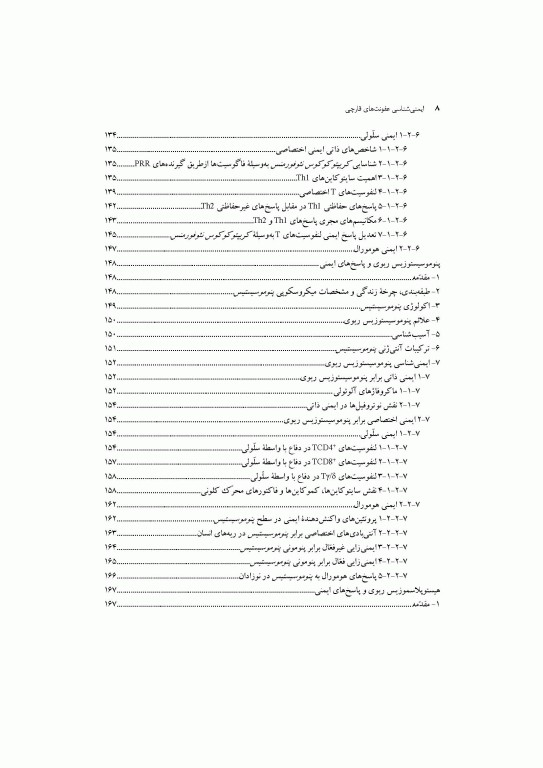 ۸ ایمنی‌شناسی عفونت‌های قارچی
۶-۲-۱ ایمنی سلّولی...۱۳۴
۶-۲-۱-۱ شاخص‌های ذاتی ایمنی اختصاصی...۱۳۵
۶-۲-۱-۲ شناسایی کریپتوکوکوس نئوفورمنس به‌وسیلهٔ فاگوسیت‌ها ازطریق گیرنده‌های PRR...۱۳۵
۶-۲-۱-۳ اهمیت سایتوکاین‌های Th1...۱۳۵
۶-۲-۱-۴ لنفوسیت‌های T اختصاصی...۱۳۹
۶-۲-۱-۵ پاسخ‌های حفاظتی Th1 در مقابل پاسخ‌های غیرحفاظتی Th2...۱۴۲
۶-۲-۱-۶ مکانیسم‌های مجری پاسخ‌های Th1 و Th2...۱۴۳
۶-۲-۱-۷ تعدیل پاسخ ایمنی لنفوسیت‌های T به‌وسیلهٔ کریپتوکوکوس نئوفورمنس...۱۴۵
۶-۲-۲ ایمنی هومورال...۱۴۷
پنوموسیستوزیس ریوی و پاسخ‌های ایمنی...۱۴۸
۱- مقدّمه...۱۴۸
۲- طبقه‌بندی، چرخهٔ زندگی و مشخصات میکروسکوپی پنوموسیستیس...۱۴۸
۳- اکولوژی پنوموسیستیس...۱۴۹
۴- علائم پنوموسیستوزیس ریوی...۱۵۰
۵- آسیب‌شناسی...۱۵۰
۶- ترکیبات آنتی‌ژنی پنوموسیستیس...۱۵۱
۷- ایمنی‌شناسی پنوموسیستوزیس ریوی...۱۵۲
۷-۱ ایمنی ذاتی برابر پنوموسیستوزیس ریوی...۱۵۲
۷-۱-۱ ماکروفاژهای آلوئولی...۱۵۲
۷-۱-۲ نقش نوتروفیل‌ها در ایمنی ذاتی...۱۵۴
۷-۲ ایمنی اختصاصی برابر پنوموسیستوزیس ریوی...۱۵۴
۷-۲-۱ ایمنی سلّولی...۱۵۴
۷-۲-۱-۱ لنفوسیت‌های TCD4⁺ در دفاع با واسطهٔ سلّولی...۱۵۴
۷-۲-۱-۲ لنفوسیت‌های TCD8⁺ در دفاع با واسطهٔ سلّولی...۱۵۷
۷-۲-۱-۳ لنفوسیت‌های Tγ/δ در دفاع با واسطهٔ سلّولی...۱۵۸
۷-۲-۱-۴ نقش سایتوکاین‌ها، کموکاین‌ها و فاکتورهای محرّک کلونی...۱۵۸
۷-۲-۲ ایمنی هومورال...۱۶۲
۷-۲-۲-۱ پروتئین‌های واکنش‌دهندهٔ ایمنی در سطح پنوموسیستیس...۱۶۲
۷-۲-۲-۲ آنتی‌بادی‌های اختصاصی برابر پنوموسیستیس در ریه‌های انسان...۱۶۳
۷-۲-۲-۳ ایمنی‌زایی غیرفعّال برابر پنومونی پنوموسیستیس...۱۶۴
۷-۲-۲-۴ ایمنی‌زایی فعّال برابر پنومونی پنوموسیستیس...۱۶۵
۷-۲-۲-۵ پاسخ‌های هومورال به پنوموسیستیس در نوزادان...۱۶۶
هیستوپلاسموزیس ریوی و پاسخ‌های ایمنی...۱۶۷
۱- مقدّمه...۱۶۷